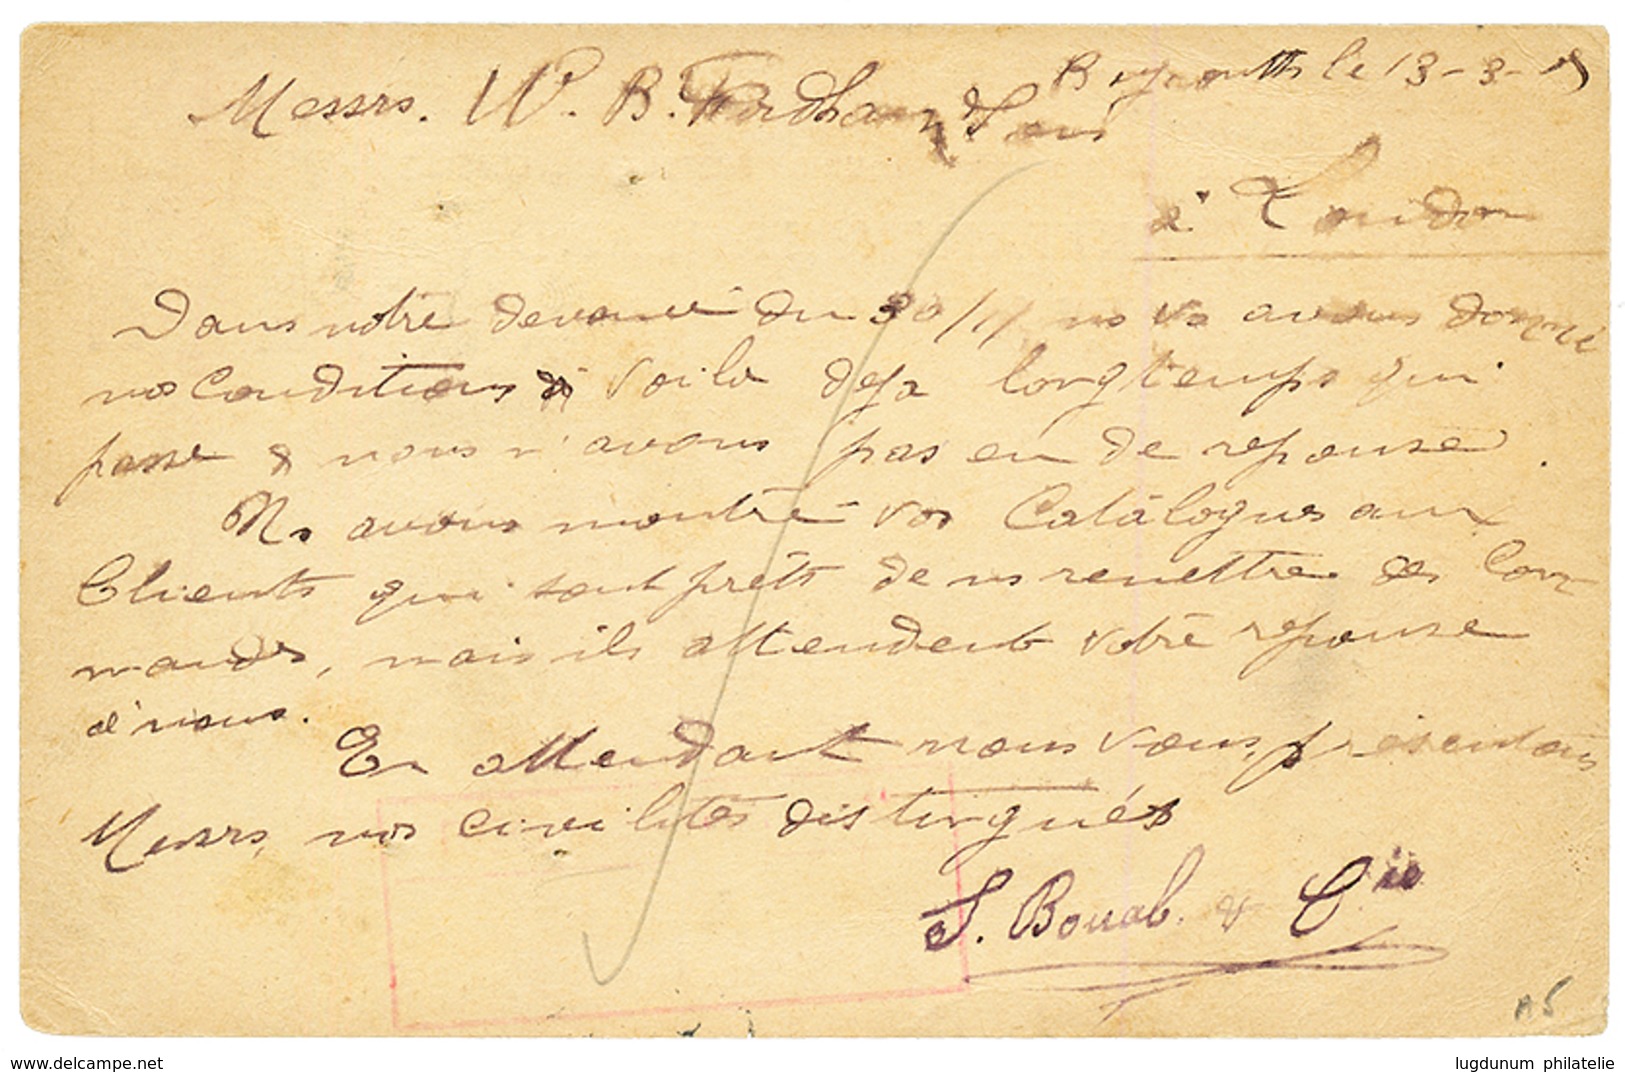 Beyrouth le 13-3-
Messrs. W. B. Fordham & Sons
à London
Dans notre devancé du 30/11 ns vs avons donné
nos Conditions & voila deja longtemps qui
passe & nous n'avons pas eu de reponse.
Ns avons montré vos Catálogues aux
Clients qui sont prêts de ns remettre des Com
mandes, mais ils attendent votre reponse
d'nous.
En attendant nous vous présentons
Messrs, nos civilités distingués
S. Bouab. & Cie
A5
www.delcampe.net
lugdunum philatelie